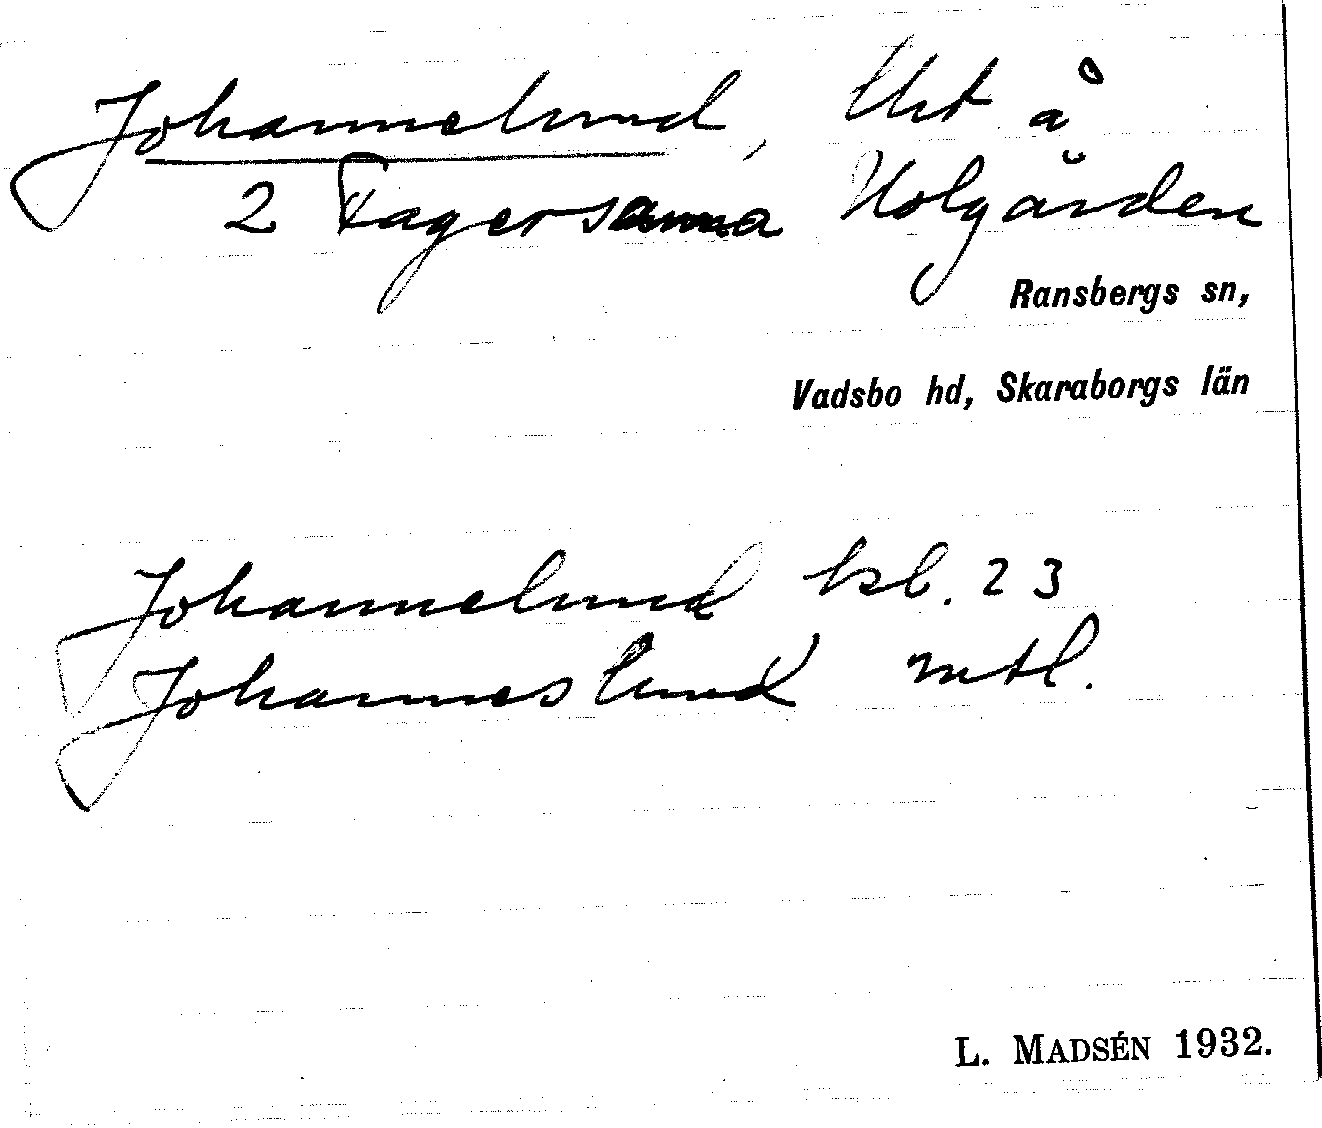 Johannelund, lht å
2 Fagersanna Holgården
Ransbergs sn,
Vadsbo hd, Skaraborgs län
Johannelund kbl. 23
Johanneslund mtl.
L. MADSÉN 1932.